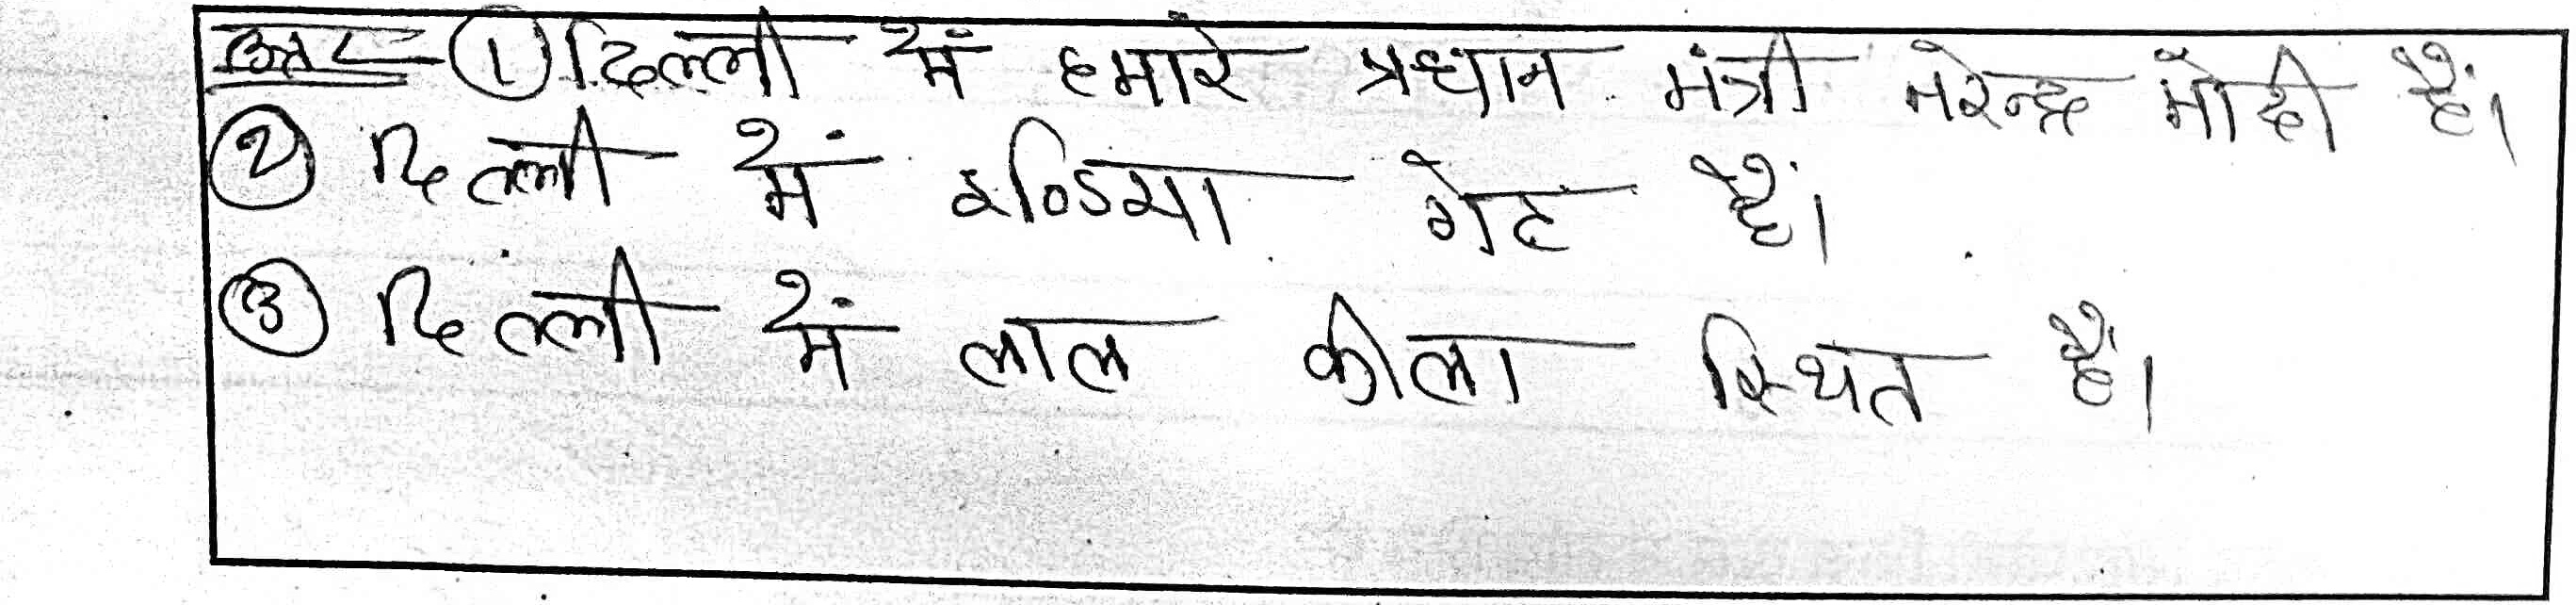 उत्तर - ① दिल्ली में हमारे प्रधान मंत्री नरेन्द्र मोदी हैं।
② दिल्ली में इण्डिया गेट हैं।
③ दिल्ली में लाल कीला स्थित हैं।